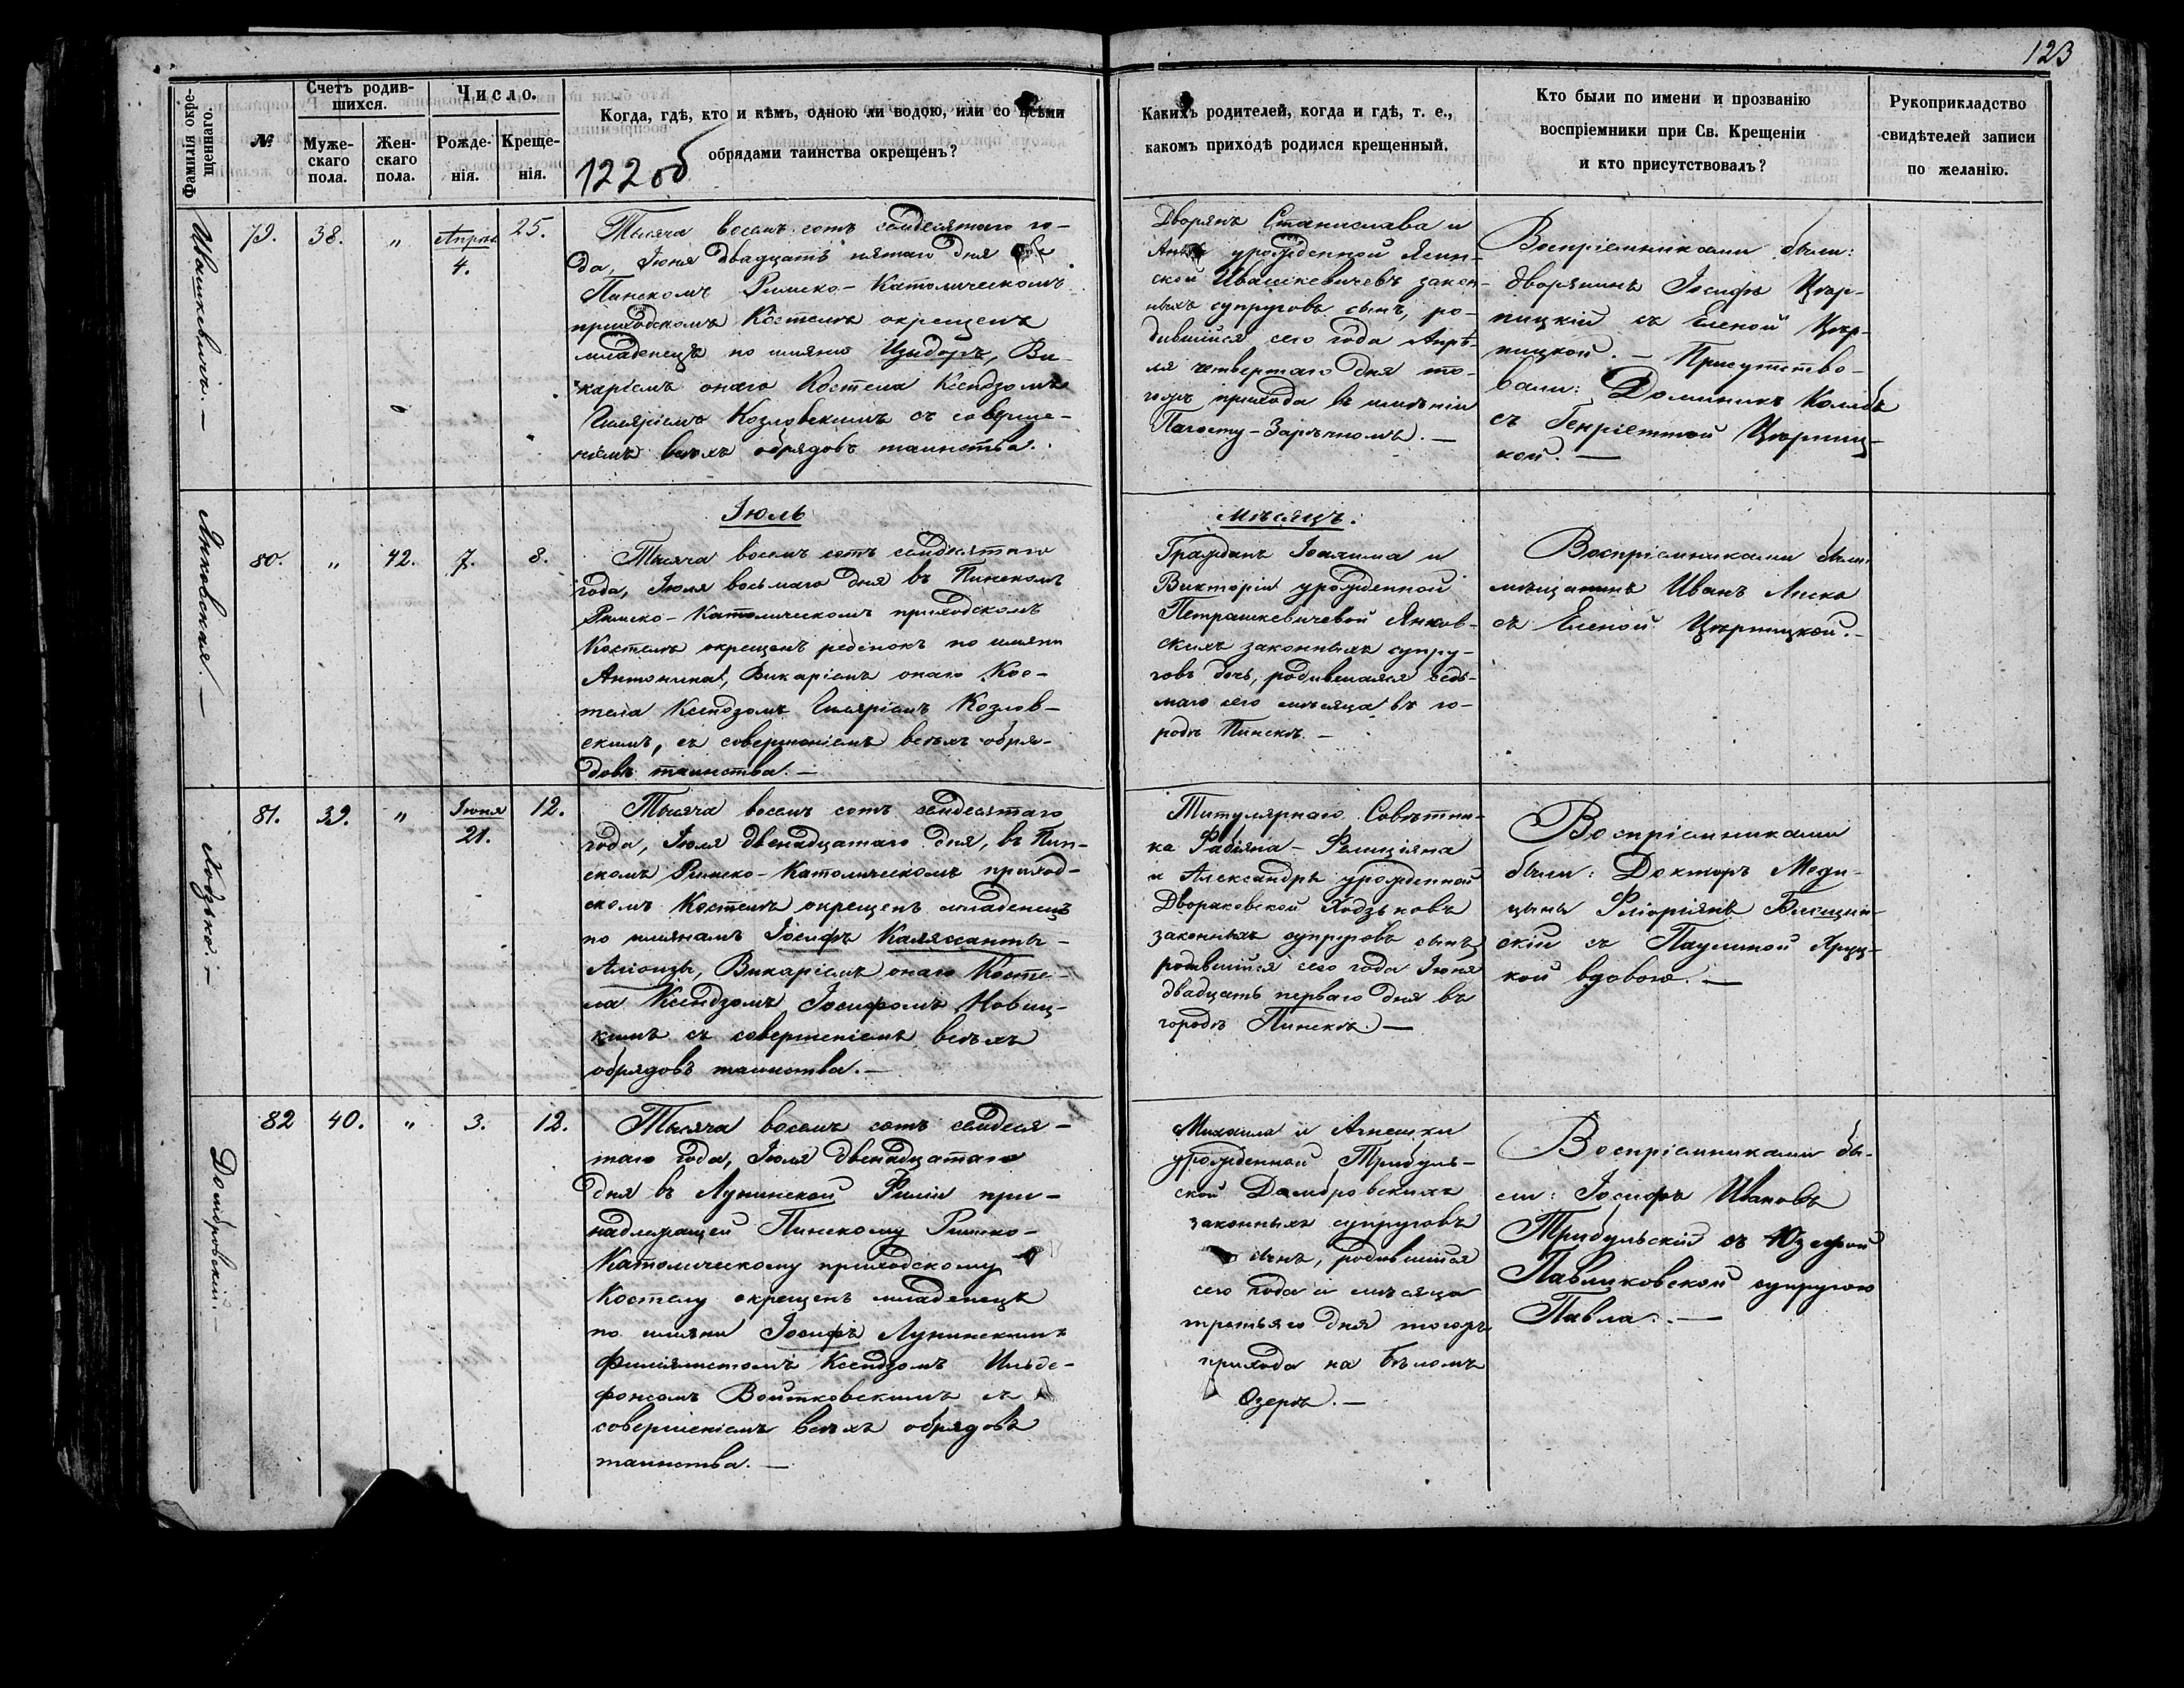 123
Фамилія окре-
щеннаго.
№
Счетъ родив-
шихся.
Муже-
скаго
пола.
Жен-
скаго
пола.
Число.
Рожде-
нія.
Креще-
нія.
Когда, гдѣ, кто и кѣмъ, одною ли водою, или со всѣми
обрядами таинства окрещенъ?
122 об
Какихъ родителей, когда и гдѣ, т. е.,
какомъ приходѣ родился крещенный.
Кто были по имени и прозванію
воспріемники при Св. Крещеніи
и кто присутствовалъ?
Рукоприкладство
свидѣтелей записи
по желанію.
Ивашкевичъ. —
79.
38.
"
Апрѣля
4.
25.
Тысяча восемь сотъ семдесятаго го-
да, Іюня двадцать пятаго дня въ
Пинскомъ Римско-Католическомъ
приходскомъ Костелѣ окрещенъ
младенецъ по имяни Изыдоръ, Ви-
каріемъ онаго Костела Ксендзомъ
Гиляріемъ Козловскимъ съ соверше-
ніемъ всѣхъ обрядовъ таинства.
Дворянъ Станислава и
урожденной Ясин-
ской Ивашкевичевъ закон-
ныхъ супруговъ сынъ, ро-
дившійся сего года Апрѣ-
ля четвертаго дня то-
гожъ прихода въ имѣніи
Погосту-Зарѣчномъ. —
Воспріемниками были:
дворянинъ Іосифъ Цѣр-
пицкій съ Еленой Цѣр-
пицкой. — Присутство-
вали: Доминикъ Колибъ
съ Генріеттой Цѣрпиц-
кой. —
Іюль
Мѣсяцъ.
Янковская. —
80.
"
42.
7.
8.
Тысяча восемь сотъ семдесятаго
года, Іюля восьмаго дня въ Пинскомъ
Римско-Католическомъ приходскомъ
Костелѣ окрещенъ ребенокъ по имяни
Антонина, Викаріемъ онаго Кос-
тела Ксендзомъ Гиляріемъ Козлов-
скимъ, съ совершеніемъ всѣхъ обря-
довъ таинства. —
Гражданъ Іоахима и
Викторіи урожденной
Петрашкевичевой Янков-
скихъ законныхъ супру-
говъ дочь, родившаяся седь-
маго сего мѣсяца въ го-
родѣ Пинскѣ. —
Воспріемниками были:
мѣщанинъ Иванъ Лиска
съ Еленой Цѣрпицкой. —
Ходзько. —
81.
39.
"
Іюня
21.
12.
Тысяча восемь сотъ семдесятаго
года, Іюля двенадцатаго дня, въ Пин-
скомъ Римско-Католическомъ приход-
скомъ Костелѣ окрещенъ младенецъ
по имянамъ Іосифъ Калясанты-
Алоизы, Викаріемъ онаго Косте-
ла Ксендзомъ Іосифомъ Новиц-
кимъ съ совершеніемъ всѣхъ
обрядовъ таинства. —
Титулярнаго Совѣтни-
ка Фабіяна-Фелиціяна
и Александры урожденной
Двораковской Ходзьковъ
законныхъ супруговъ сынъ,
родившійся сего года Іюня
двадцать перваго дня въ
городѣ Пинскѣ. —
Воспріемниками
были: Докторъ Меди-
цины Флоріянъ
скій съ Паулиной Яруц-
кой вдовою. —
Домбровскій. —
82
40.
"
3.
12.
Тысяча восемь сотъ семдеся-
таго года, Іюля двенадцатаго
дня въ Лунинской Филіи при-
надлежащей Пинскому Римско-
Католическому приходскому
Костелу окрещенъ младенецъ
по имяни Іосифъ Лунинскимъ
филіялистомъ Ксендзомъ Ильде-
фонсомъ Войтковскимъ съ
совершеніемъ всѣхъ обрядовъ
таинства. —
Михаила и Агнешки
урожденной Трибуль-
ской Домбровскихъ
законныхъ супруговъ
сынъ, родившійся
сего года и мѣсяца
третьяго дня тогожъ
прихода на Бѣломъ
Озерѣ. —
Воспріемниками бы-
ли: Іосифъ Ивановъ
Трибульскій съ Юзефой
Павликовской супругою
Павла. —